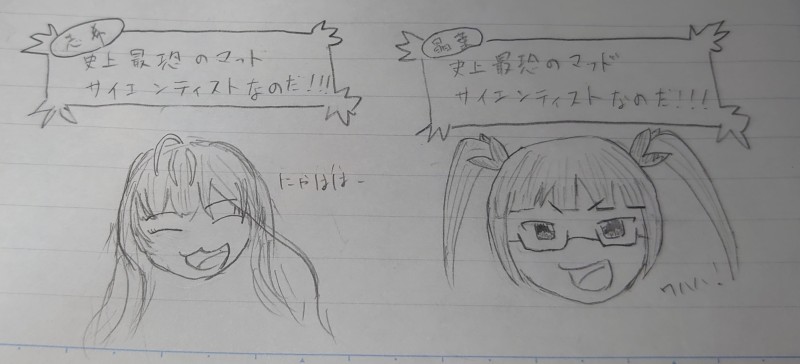 志希
史上最恐のマッド
サイエンティストなのだ!!!
にゃはは〜
晶葉
史上最恐のマッド
サイエンティストなのだ!!!
ワハハ!